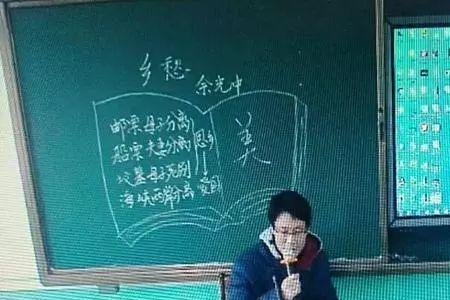 乡愁
余光中
邮票 母子分离
船票 夫妻分离
坟墓 母子死别
海峡 两岸分离
思乡
爱国
美